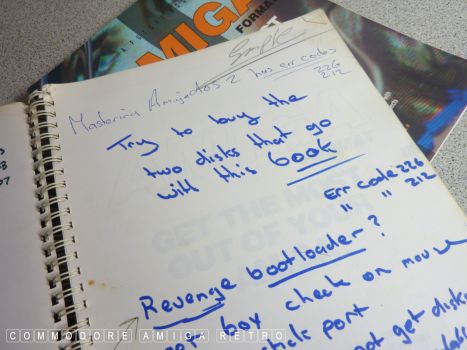 AMIGA
FORMAT
Sample
Mastering AmigaDOS 2 has err codes
226
212
Try to buy the
two disks that go
with this book
Err code 226
" " 212
GET THE MOST
OUT OF YOUR
Revenge bootloader?
box check on mouse
port
not get disks
COMMODORE AMIGA RETRO